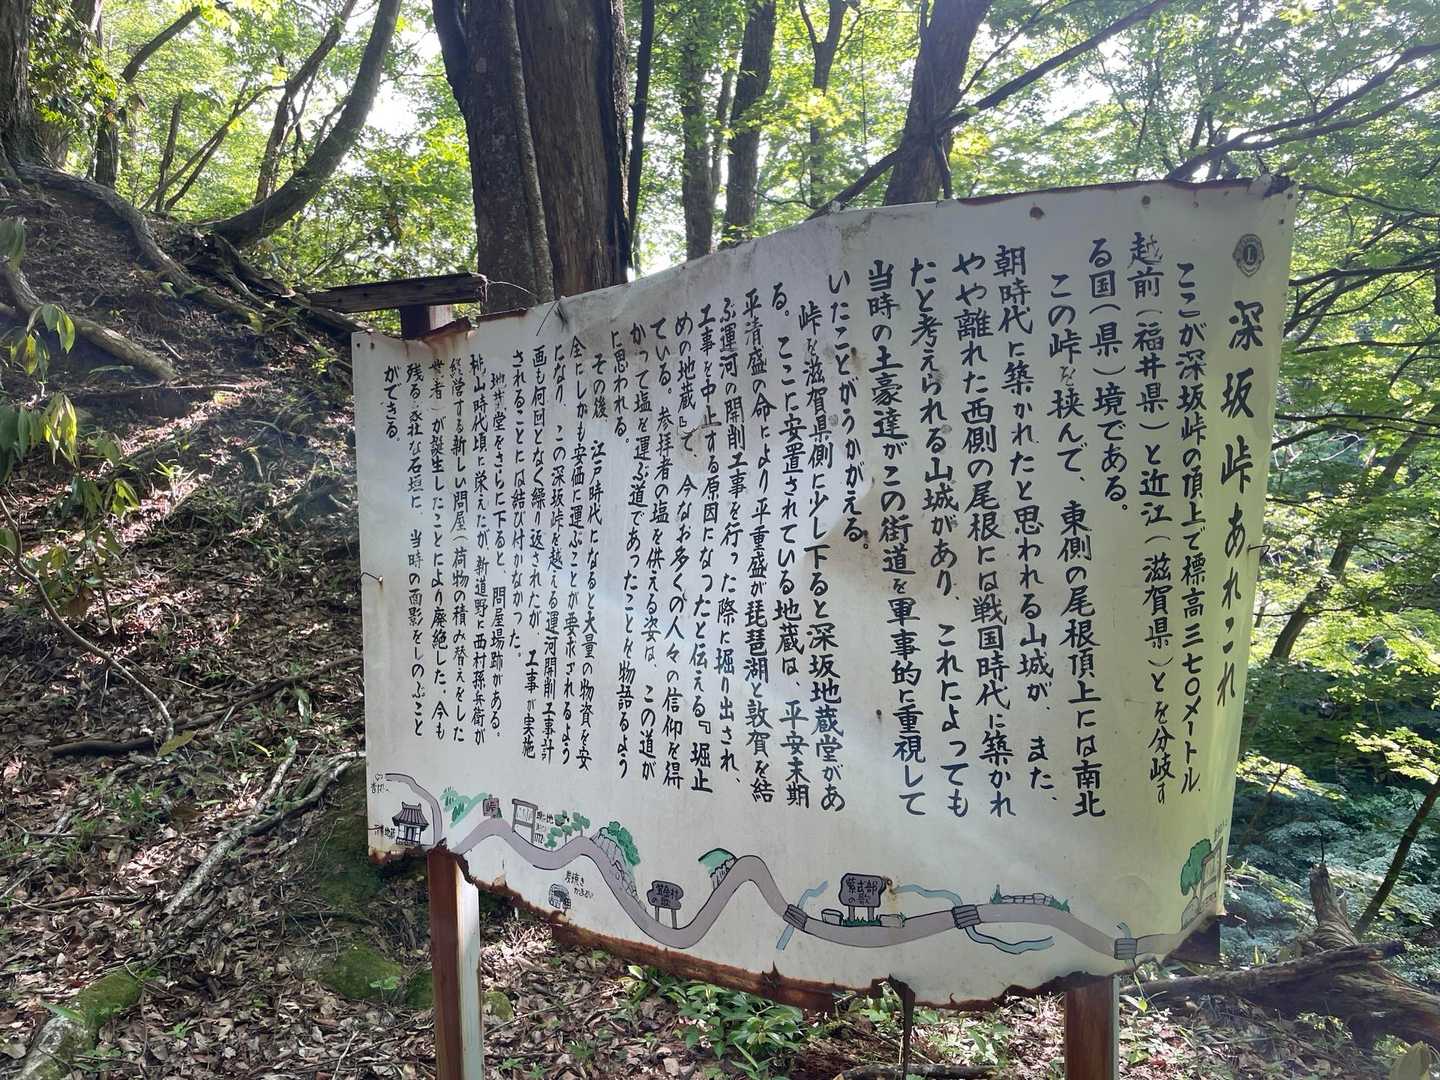 深坂峠あれこれ
ここが深坂峠の頂上で標高三七〇メートル、
越前(福井県)と近江(滋賀県)とを分岐す
る国(県)境である。
この峠を挟んで、東側の尾根頂上には南北
朝時代に築かれたと思われる山城が、また、
やや離れた西側の尾根には戦国時代に築かれ
たと考えられる山城があり、これによっても
当時の土豪達がこの街道を軍事的に重視して
いたことがうかがえる。
峠を滋賀県側に少し下ると深坂地蔵堂があ
る。ここに安置されている地蔵は、平安末期
平清盛の命により平重盛が琵琶湖と敦賀を結
ぶ運河の開削工事を行った際に掘り出され、
工事を中止する原因になったと伝える『堀止
めの地蔵』で、今なお多くの人々の信仰を得
ている。参拝者の塩を供える姿は、この道が
かつて塩を運ぶ道であったことを物語るよう
に思われる。
その後、江戸時代になると大量の物資を安
全にしかも安価に運ぶことが要求されるよう
になり、この深坂峠を越える運河開削工事計
画も何回となく繰り返されたが、工事が実施
されることには結び付かなかった。
地蔵堂をさらに下ると、問屋場跡がある。
桃山時代頃に栄えたが、新道野に西村孫兵衛が
経営する新しい問屋(荷物の積み替えをした
業者)が誕生したことにより廃絶した。今も
残る壮な石垣に、当時の面影をしのぶこと
ができる。
峠
炭焼き
かまあと
笠金村
の歌
紫式部
の歌